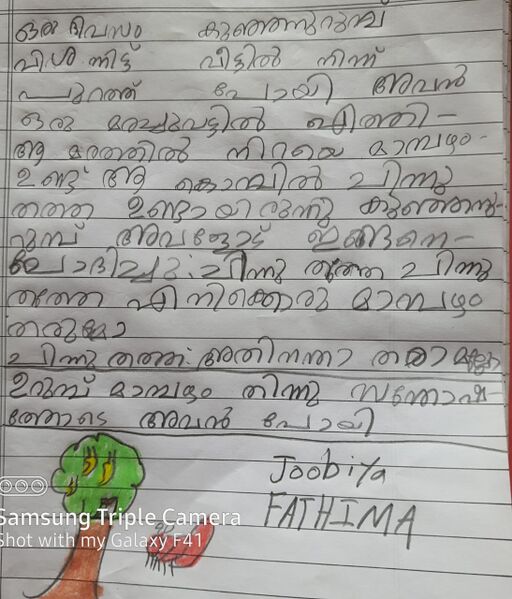 ഒരു ദിവസം കുഞ്ഞനുറുമ്പ്
വിശന്നിട്ട് വീട്ടിൽ നിന്ന്
പുറത്ത് പോയി അവൻ
ഒരു മരച്ചുവട്ടിൽ എത്തി-
ആ മരത്തിൽ നിറയെ മാമ്പഴം-
ഉണ്ട് ആ കൊമ്പിൽ ചിന്നു
തത്ത ഉണ്ടായിരുന്നു കുഞ്ഞനു-
റുമ്പ് അവളോട് ഇങ്ങനെ-
ചോദിച്ചു: ചിന്നു തത്തേ ചിന്നു
തത്തേ എനിക്കൊരു മാമ്പഴം
തരുമോ
ചിന്നു തത്ത: അതിനെന്താ തരാമല്ലോ
ഉറുമ്പ് മാമ്പഴം തിന്നു സന്തോഷ-
ത്തോടെ അവൻ പോയി
Joobiya
FATHIMA
Samsung Triple Camera
Shot with my Galaxy F41